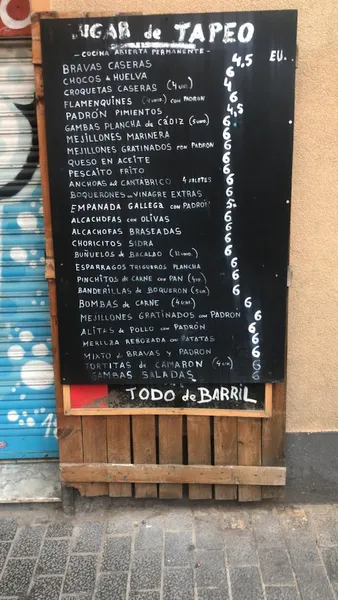 LUGAR de TAPEO
- COCINA ABIERTA PERMANENTE - EU.
BRAVAS CASERAS 4,5
CHOCOS A HUELVA 6
CROQUETAS CASERAS (4 UNI) 6
FLAMENQUINES CON PADRON 6
PADRÓN PIMIENTOS 4,5
GAMBAS PLANCHA de CÁDIZ (5 UNI) 6
MEJILLONES MARINERA 6
MEJILLONES GRATINADOS CON PADRON 6
QUESO EN ACEITE 6
PESCAITO FRITO 6
ANCHOAS del CANTÁBRICO 4 FILETES 6
BOQUERONES VINAGRE EXTRAS 6
EMPANADA GALLEGA CON PADRON 5
ALCACHOFAS CON OLIVAS 6
ALCACHOFAS BRASEADAS 6
CHORICITOS SIDRA 6
BUÑUELOS de BACALAO 6
ESPARRAGOS TRIGUEROS PLANCHA 6
PINCHITOS de CARNE CON PAN 6
BANDERILLAS de BOQUERON 6
BOMBAS de CARNE (4 UNI) 6
MEJILLONES GRATINADOS CON PADRÓN 6
ALITAS de POLLO CON PADRÓN 6
MERLUZA REBOZADA CON PATATAS 6
MIXTO de BRAVAS Y PADRON 6
TORTITAS de CAMARON (4 UNI) 6
GAMBAS SALADAS 6
TODO de BARRIL